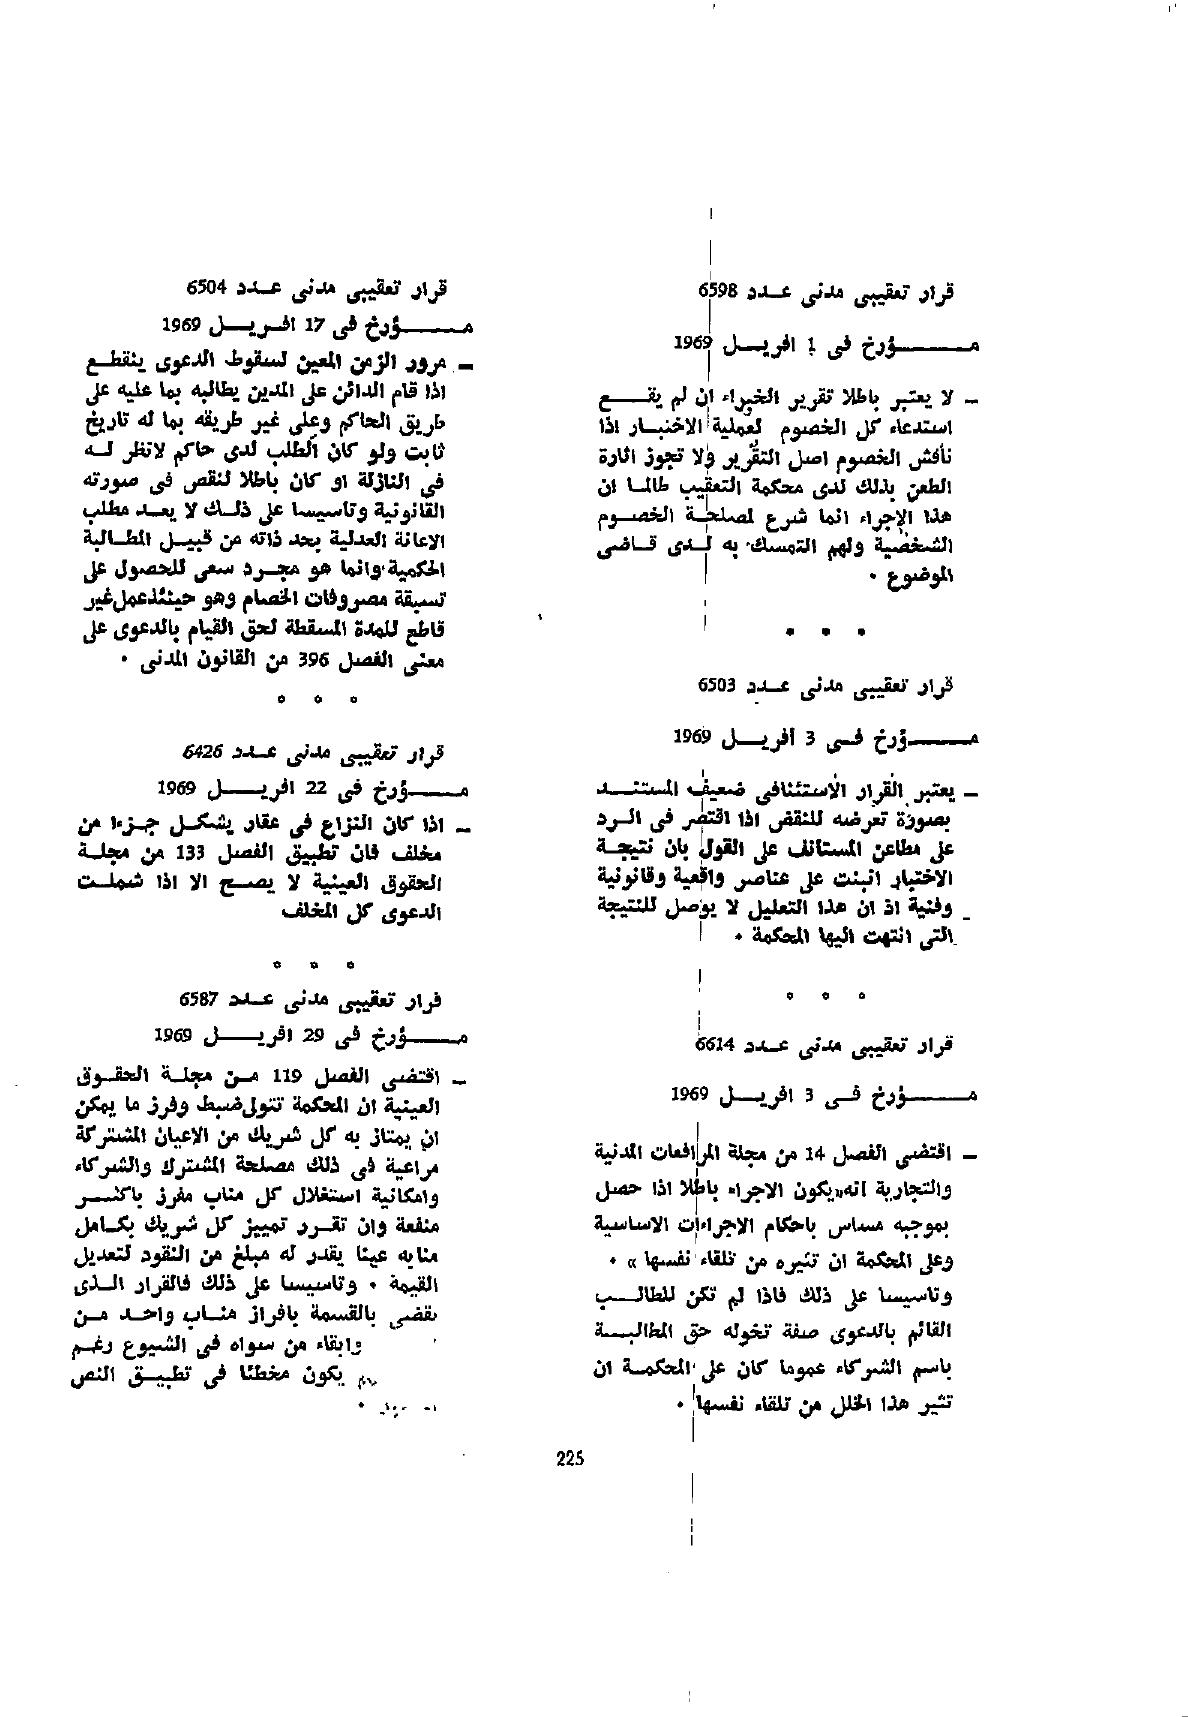 قرار تعقيبى مدنى عدد 6598
مؤرخ فى 1 افريل 1969
ـ لا يعتبر باطلا تقرير الخبراء ان لم يقع
استدعاء كل الخصوم لعملية الاختبار اذا
ناقش الخصوم اصل التقرير ولا تجوز اثارة
الطعن بذلك لدى محكمة التعقيب طالما ان
هذا الاجراء انما شرع لصلحة الخصوم
الشخصية ولهم التمسك به لدى قاضى
الموضوع .
* * *
قرار تعقيبى مدنى عدد 6503
مؤرخ فى 3 افريل 1969
ـ يعتبر القرار الاستئنافى ضعيف المستند
بصورة تعرضه للنقض اذا اقتصر فى الرد
على مطاعن المستانف على القول بان نتيجة
الاختبار انبنت على عناصر واقعية وقانونية
وفنية اذ ان هذا التعليل لا يوصل للنتيجة
التى انتهت اليها المحكمة .
* * *
قرار تعقيبى مدنى عدد 6614
مؤرخ فى 3 افريل 1969
ـ اقتضى الفصل 14 من مجلة المرافعات المدنية
والتجارية انه «يكون الاجراء باطلا اذا حصل
بموجبه مساس باحكام الاجراءات الاساسية
وعلى المحكمة ان تثيره من تلقاء نفسها » .
وتاسيسا على ذلك فاذا لم تكن للطالب
القائم بالدعوى صفة تخوله حق المطالبة
باسم الشركاء عموما كان على المحكمة ان
تثير هذا الخلل من تلقاء نفسها .
قرار تعقيبى مدنى عدد 6504
مؤرخ فى 17 افريل 1969
ـ مرور الزمن المعين لسقوط الدعوى ينقطع
اذا قام الدائن على المدين يطالبه بما عليه على
طريق الحاكم وعلى غير طريقه بما له تاريخ
ثابت ولو كان الطلب لدى حاكم لانظر له
فى النازلة او كان باطلا لنقص فى صورته
القانونية وتاسيسا على ذلك لا يعد مطلب
الاعانة العدلية بحد ذاته من قبيل المطالبة
الحكمية وانما هو مجرد سعى للحصول على
تسبقة مصروفات الخصام وهو حينئذ عمل غير
قاطع للمدة المسقطة لحق القيام بالدعوى على
معنى الفصل 396 من القانون المدنى .
* * *
قرار تعقيبى مدنى عدد 6426
مؤرخ فى 22 افريل 1969
ـ اذا كان النزاع فى عقار يشكل جزءا من
مخلف فان تطبيق الفصل 133 من مجلة
الحقوق العينية لا يصح الا اذا شملت
الدعوى كل المخلف
* * *
قرار تعقيبى مدنى عدد 6587
مؤرخ فى 29 افريل 1969
ـ اقتضى الفصل 119 من مجلة الحقوق
العينية ان المحكمة تتولى ضبط وفرز ما يمكن
ان يمتاز به كل شريك من الاعيان المشتركة
مراعية فى ذلك مصلحة المشترك والشركاء
وامكانية استغلال كل مناب مفرز باكثر
منفعة وان تقرر تمييز كل شريك بكامل
منابه عينا يقدر له مبلغ من النقود لتعديل
القيمة . وتاسيسا على ذلك فالقرار الذى
يقضى بالقسمة بافراز مناب واحد من
وابقاء من سواه فى الشيوع رغم
يكون مخطئا فى تطبيق النص
225